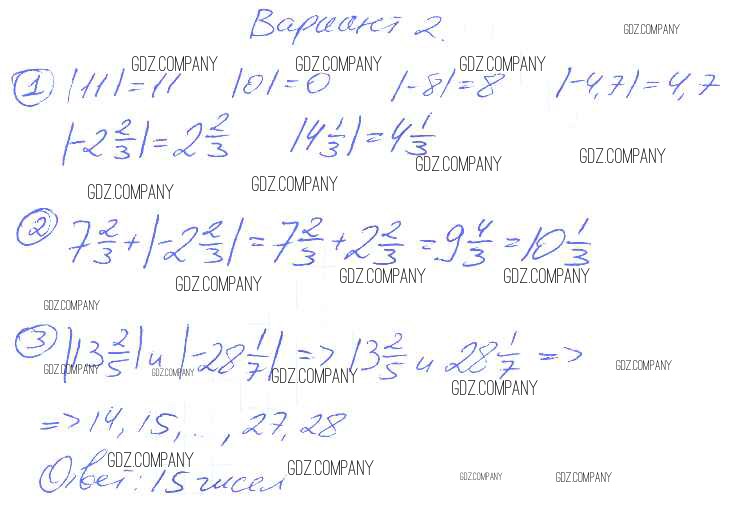 Вариант 2.
GDZ.COMPANY
GDZ.COMPANY GDZ.COMPANY GDZ.COMPANY
1 |11|=11 |0|=0 |-8|=8 |-4,7|=4,7
|-2 2/3|=2 2/3 |4 1/3|=4 1/3
GDZ.COMPANY GDZ.COMPANY
GDZ.COMPANY GDZ.COMPANY
2 7 2/3+|-2 2/3|=7 2/3+2 2/3=9 4/3=10 1/3
GDZ.COMPANY GDZ.COMPANY GDZ.COMPANY
GDZ.COMPANY
3 |13 2/5| и |-28 1/7| => 13 2/5 и 28 1/7 =>
GDZ.COMPANY GDZ.COMPANY GDZ.COMPANY GDZ.COMPANY GDZ.COMPANY
=> 14, 15, ..., 27, 28
Ответ: 15 чисел
GDZ.COMPANY GDZ.COMPANY GDZ.COMPANY GDZ.COMPANY